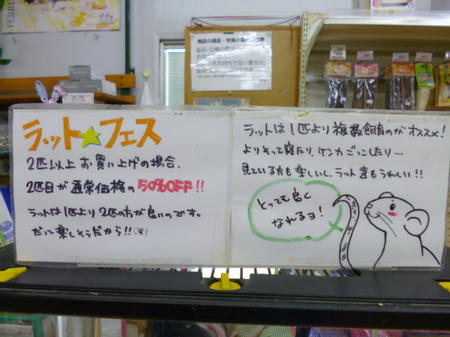 ラット☆フェス
2匹以上お買い上げの場合、
2匹目が通常価格の50%OFF!!
ラットは1匹より2匹の方が良いのです。
だって楽しそうだから!!(笑)
ラットは1匹より複数飼育のがオススメ!
よりそって寝たり、ケンカごっこしたり…
見ている方も楽しいし、ラット達もうれしい!!
とっても良く
なれるョ!